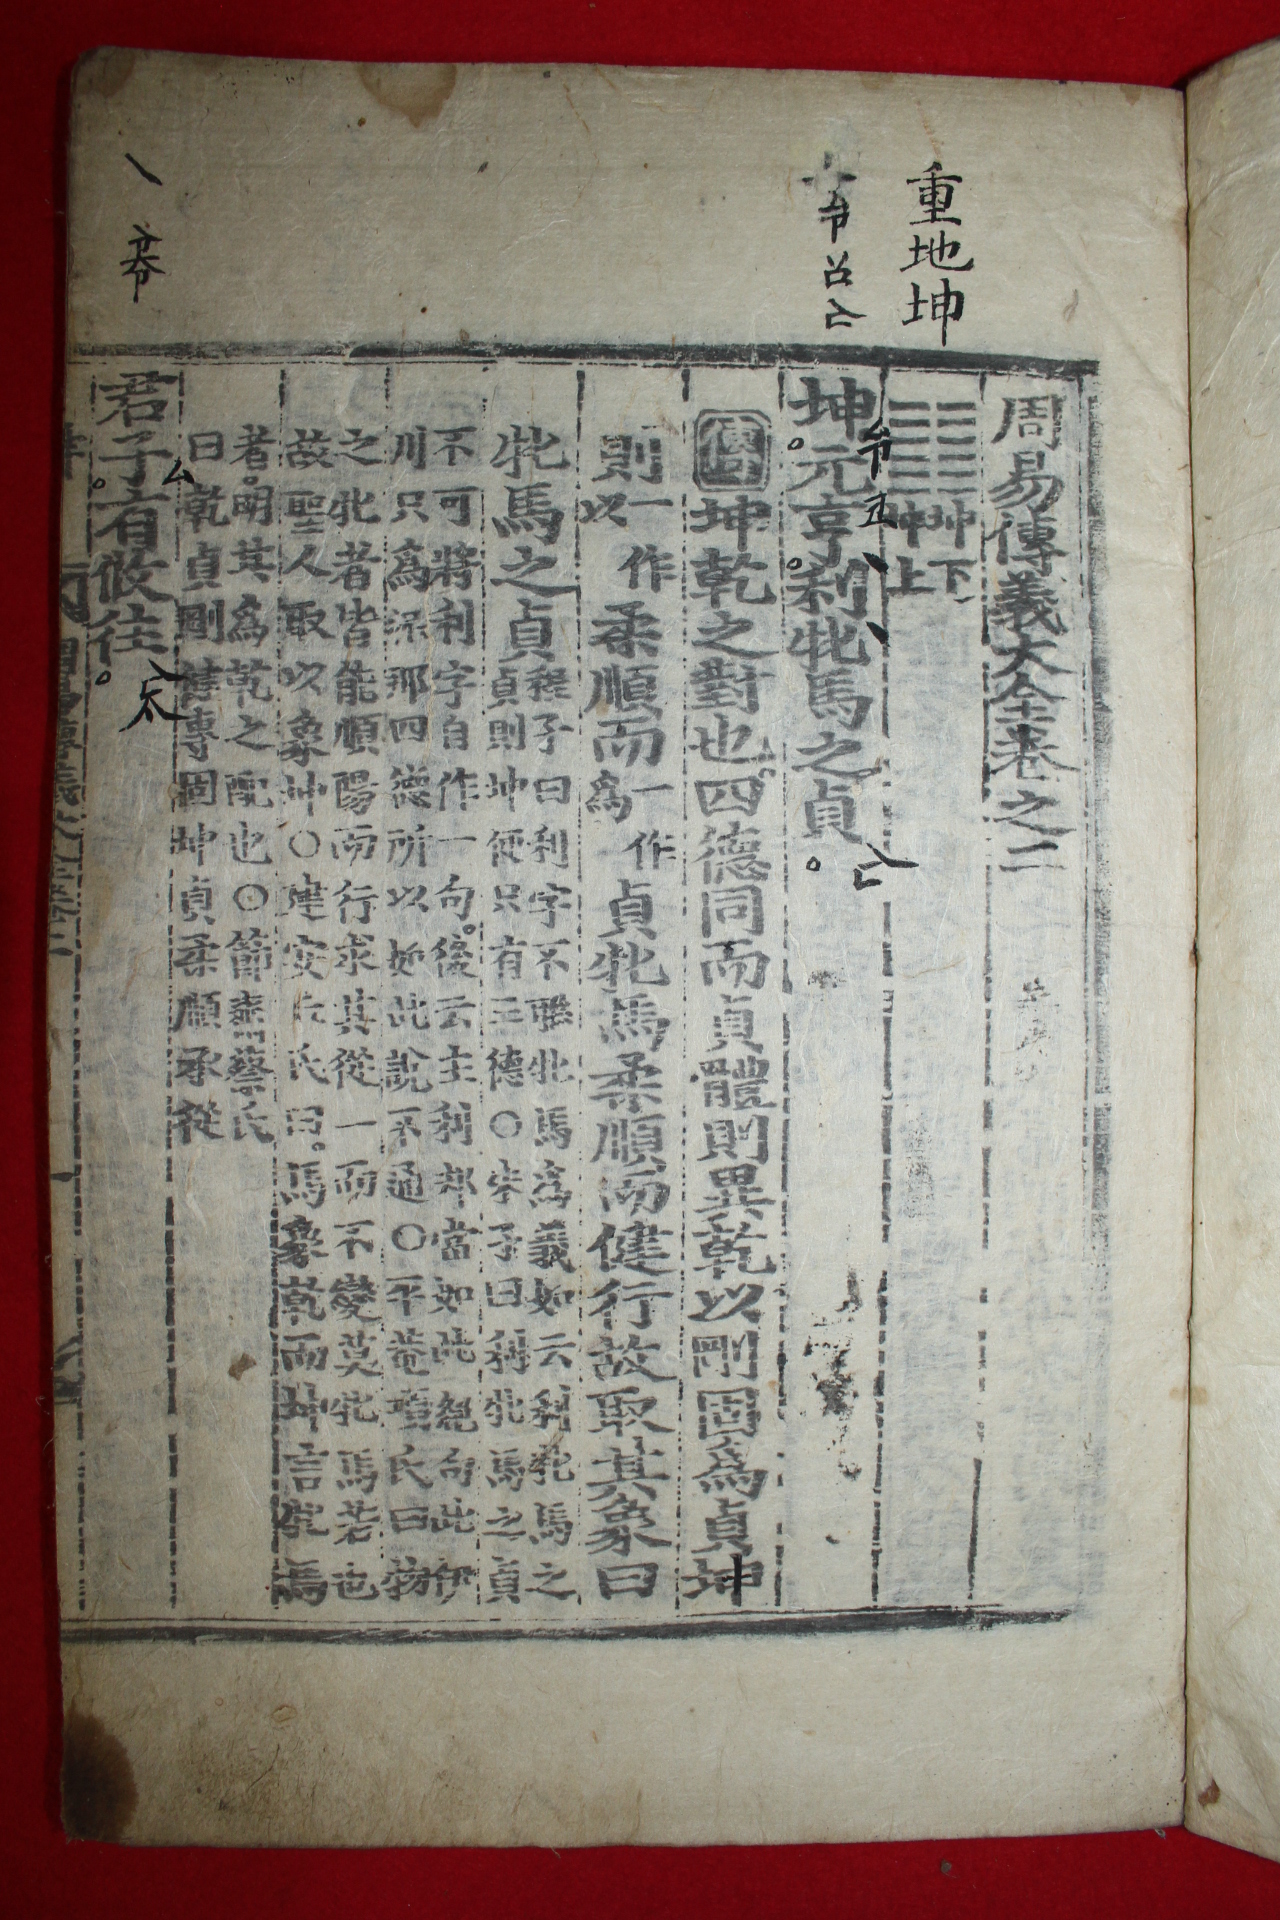 重地坤
周易傳義大全卷之二
坤下
坤上
坤元亨利牝馬之貞
傳坤乾之對也四德同而貞體則異乾以剛固爲貞坤
則一作以柔順而一作爲貞牝馬柔順而健行故取其象曰
牝馬之貞程子曰利字不聯牝馬爲義如云利牝馬之
貞則坤便只有三德○朱子曰利牝馬之貞
不可將利字自作一句後云主利却當如此絕句此伊
川只爲泥那四德所以如此說不通○平菴項氏曰物
之牝者皆能順陽而行求其從一而不變莫牝馬若也
故聖人取以象坤○建安丘氏曰馬象乾而坤言牝馬
者明其爲乾之配也○節齋蔡氏
曰乾貞剛健專固坤貞柔順承從
君子有攸往